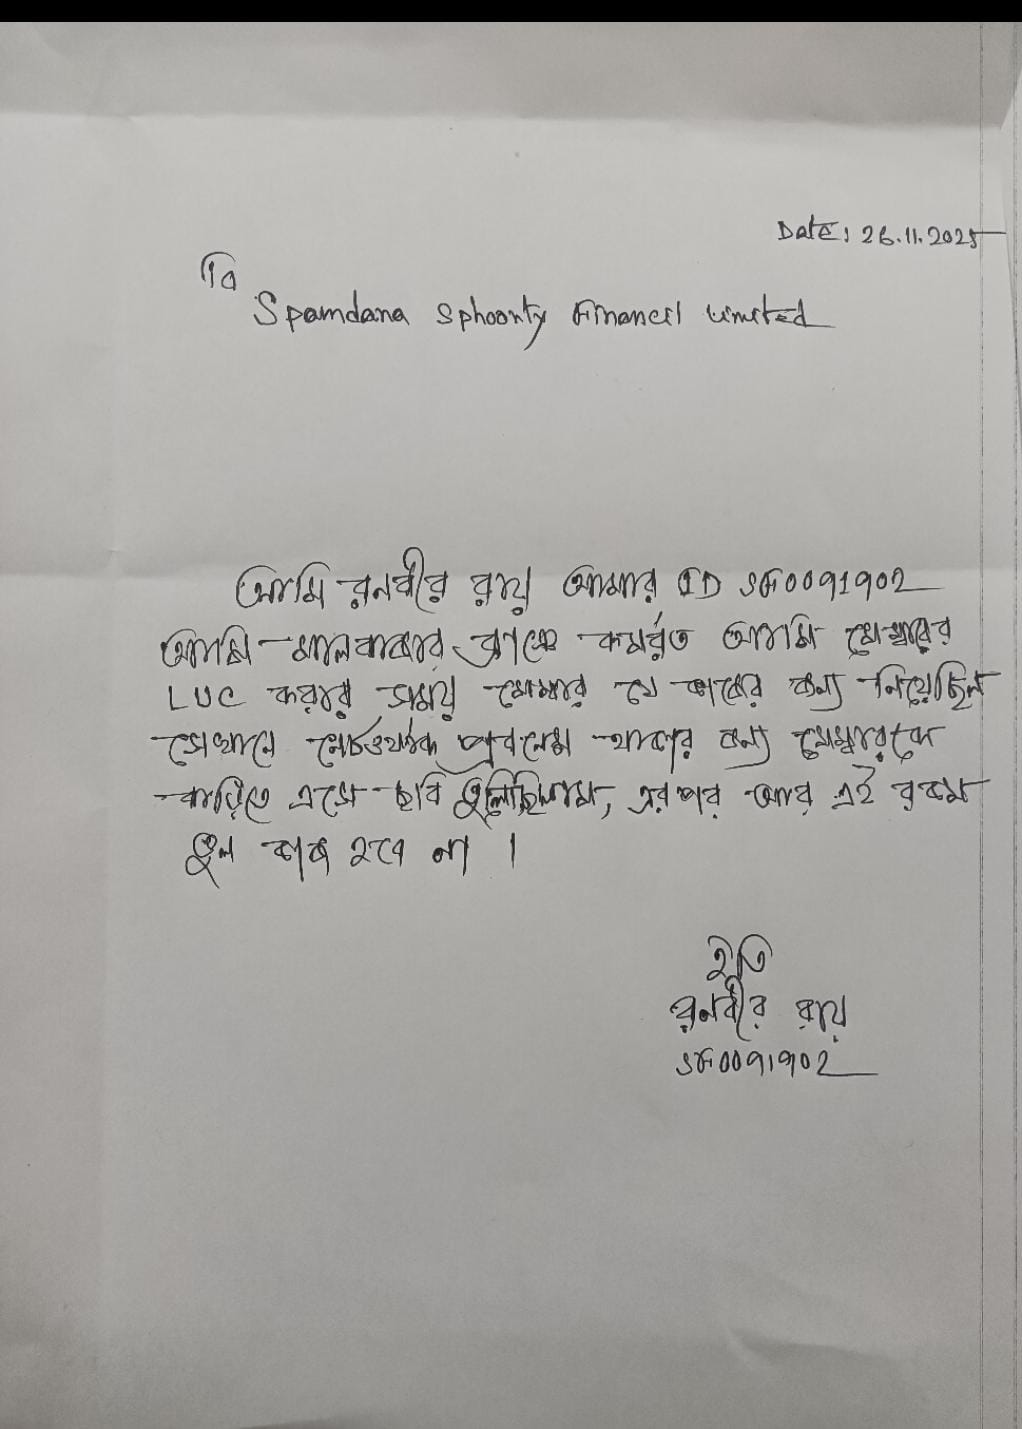 Date: 26.11.2025
To
Spamdana Sphoonty Financil Limited
আমি রনবীর রায় আমার ID SF0091902
আমি মালবাজার ব্রাঞ্চে কর্মরত আমি মেম্বারের
LUC করার সময় মেম্বার যে কাজের জন্য নিয়েছিল
সেখানে নেটওয়ার্ক প্রবলেম থাকার জন্য মেম্বারকে
বাড়িতে এসে ছবি তুলেছিলাম, এরপর আর এই রকম
ভুল কাজ হবে না ।
ইতি
রনবীর রায়
SF0091902